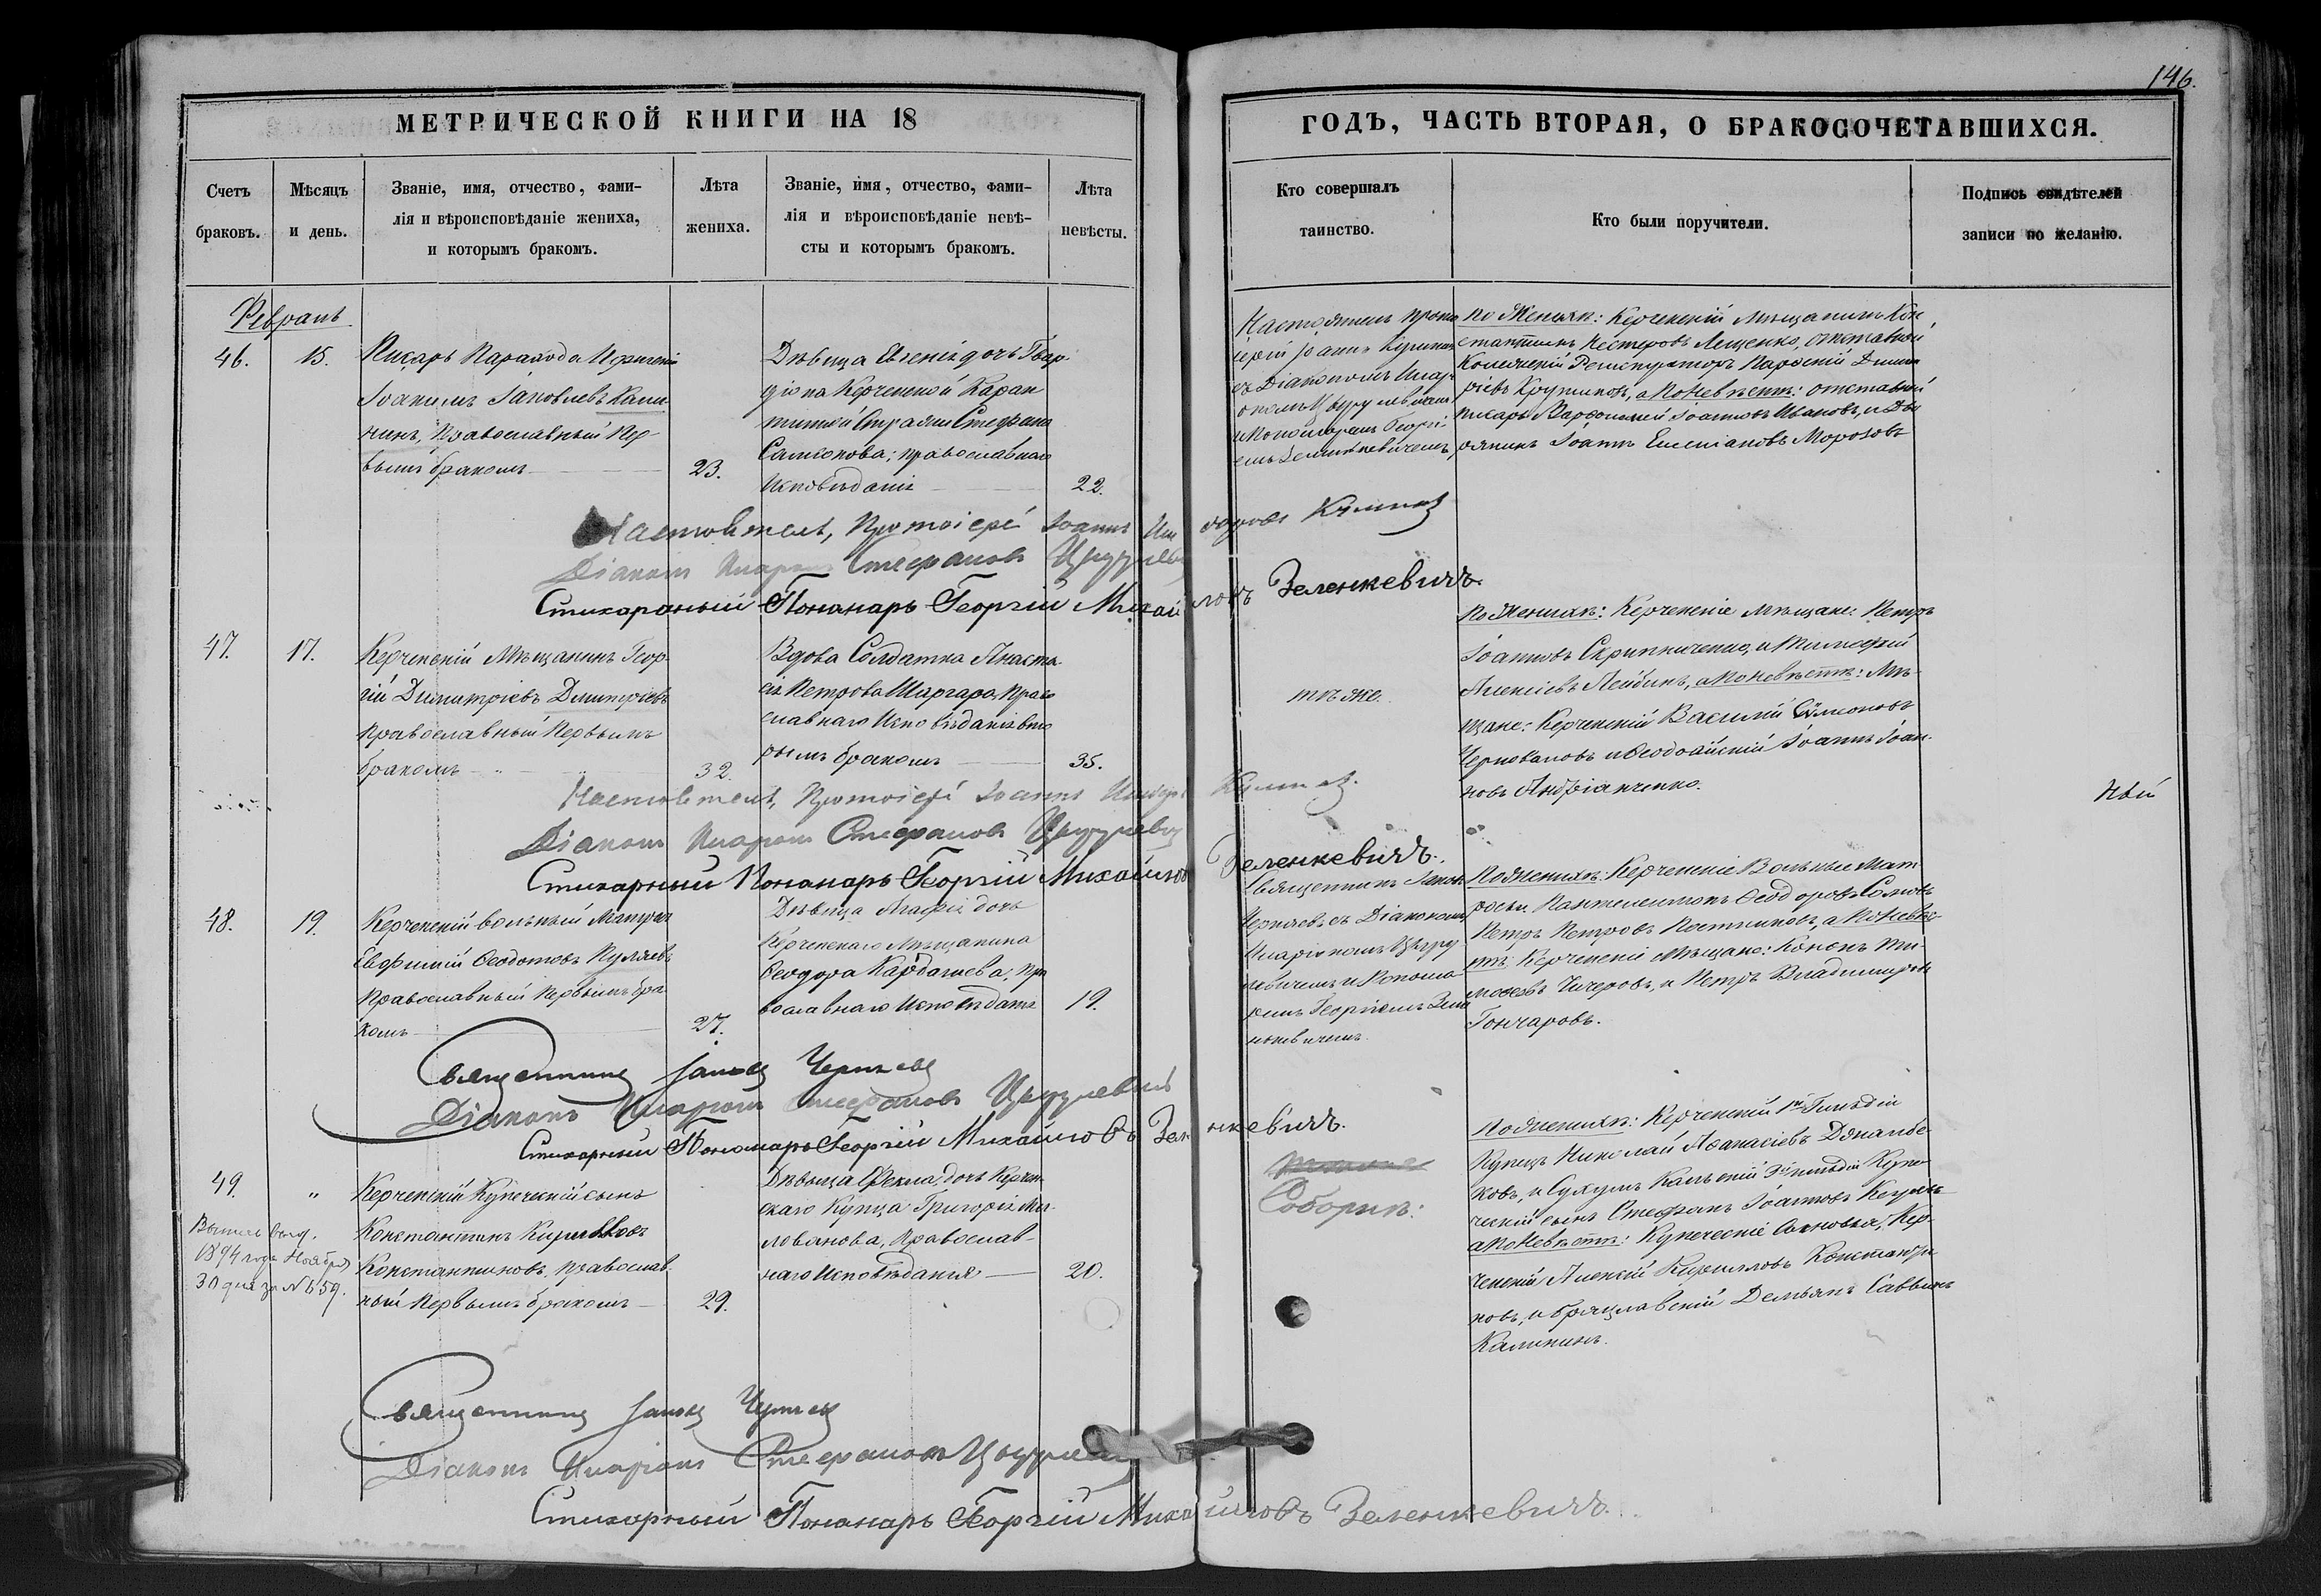 146.
МЕТРИЧЕСКОЙ КНИГИ НА 18
ГОДЪ, ЧАСТЬ ВТОРАЯ, О БРАКОСОЧЕТАВШИХСЯ.
Счетъ
браковъ.
Мѣсяцъ
и день.
Званіе, имя, отчество, фами-
лія и вѣроисповѣданіе жениха,
и которымъ бракомъ.
Лѣта
жениха.
Званіе, имя, отчество, фами-
лія и вѣроисповѣданіе невѣ-
сты и которымъ бракомъ.
Лѣта
невѣсты.
Кто совершалъ
таинство.
Кто были поручители.
Подпись свидѣтелей
записи по желанію.
Февраль
46.
15.
Писарь Парахода
Іоакимъ Іаковлевъ
Православный Пер-
вымъ бракомъ
23.
Дѣвица Евгенія дочь Гвар
діона Керченской Каран
тинной Стражи Стефана
Самсонова; православнаго
Исповѣданія
22.
Настоятель Прото
іерей Іоаннъ
съ Діакономъ
и Пономаремъ Георгі
емъ
По Женихѣ: Керченскій Мѣщанинъ Кон
стантинъ Нестеровъ Лещенко, отставной
Колежскій Регистраторъ
Крутиковъ, а По Невѣстѣ: отставной
писарь Варѳоломей Іоанновъ Ивановъ, и Дво
рянинъ Іоаннъ Емеліановъ Морозовъ
Настоятель, Протоіерей Іоаннъ
Діаконъ Иларіонъ Стефановъ
Стихарный Пономарь Георгій Михайловъ Зеленкевичъ.
47.
17.
Керченскій Мѣщанинъ Геор-
гій Димитріевъ Дмитріевъ
православный Первымъ
бракомъ
32.
Вдова Солдатка Анаста
сія Петрова Шаргара, Право
славнаго Исповѣданія вто
рымъ бракомъ
35.
тѣ же.
По Женихѣ: Керченскіе мѣщане: Петръ
Іоанновъ Скрипниченко, и Тимофей
Алексіевъ Лейбинъ, а По Невѣстѣ: Мѣ-
щане: Керченскій Василій Сѵмеоновъ
Черновановъ и Ѳеодосійскій Іоаннъ Іоан-
новъ Андріанченко.
ный
Настоятель, Протоіерей Іоаннъ
Діаконъ Иларіонъ Стефановъ
Стихарный Пономарь Георгій Михайловъ Зеленкевичъ.
48.
19.
Керченскій вольный Матрозъ
Евфимій Ѳеодотовъ Куляевъ
Православный Первымъ бра
комъ
27.
Дѣвица Агафія дочь
Керченскаго Мѣщанина
Ѳеодора Кардашева, Пра
вославнаго Исповѣданія
19.
Священникъ Іаковъ
Черняевъ съ Діакономъ
Иларіономъ Цвѣру
левичемъ и Понома
ремъ Георгіемъ Зеле
нкевичемъ.
По Женихѣ: Керченскіе Вольные Мат
росы Пантелеимонъ Ѳеодоровъ Сомовъ
Петръ Петровъ Постниковъ, а По Невѣс-
тѣ: Керченскіе Мѣщане: Кононъ Ти-
моѳеевъ Чичеровъ, и Петръ Владимировъ
Гончаровъ.
Священникъ Іаковъ Черняевъ
Діаконъ Иларіонъ Стефановъ
Стихарный Пономарь Георгій Михайловъ Зеленкевичъ.
49.
"
Керченскій Купеческій сынъ
Константинъ Кирилловъ
Константиновъ, православ-
ный Первымъ бракомъ
29.
1894 года Ноября
30 дня за № 659.
Дѣвица Ѳекла, дочь Керчен
скаго Купца Григорія Ми-
лованова, Православ-
наго Исповѣданія
20.
Соборнѣ:
По Женихѣ: Керченскій 1й Гильдіи
Купецъ Николай Аѳанасіевъ Джамбе
ковъ, и Сухумъ Кальскій 3й гильдіи Купе
ческій сынъ Стефанъ Іоанновъ
а По Невѣстѣ: Купеческіе Сыновья, Кер-
ченскій Алексій Кирилловъ Константи
новъ, и Брацлавскій Демьянъ Саввинъ
Калининъ.
Священникъ Іаковъ Черняевъ
Діаконъ Иларіонъ Стефановъ
Стихарный Пономарь Георгій Михайловъ Зеленкевичъ.